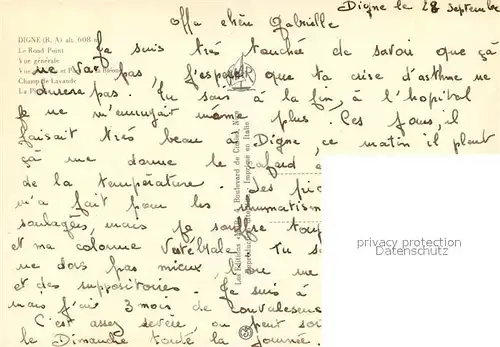 Digne le 28 septembre
Ma chère Gabrielle
DIGNE (B. A) alt. 608 m
Je suis très touchée de savoir que çà
Le Rond Point
Vue générale
ne va pas, J'espère que ta crise d'asthme ne
Champ de Lavande
durera pas. Tu sais à la fin, à l'hopital
Je ne m'ennuyait même plus. Ces jours, il
faisait très beau à Digne, ce matin il pleut
çà me donne le cafard
de la température. des
m'a fait pour les rhumatismes
soulagées, mais je souffre
et ma colonne Vertébrale. Tu
ne dors pas mieux, me
et des suppositoires. Je suis à
mais j'ai 3 mois de convalescence
C'est assez sevère, on peut
le Dimanche toute la journée.
Boulevard de
Imprimé en Italie
privacy protection
Datenschutz